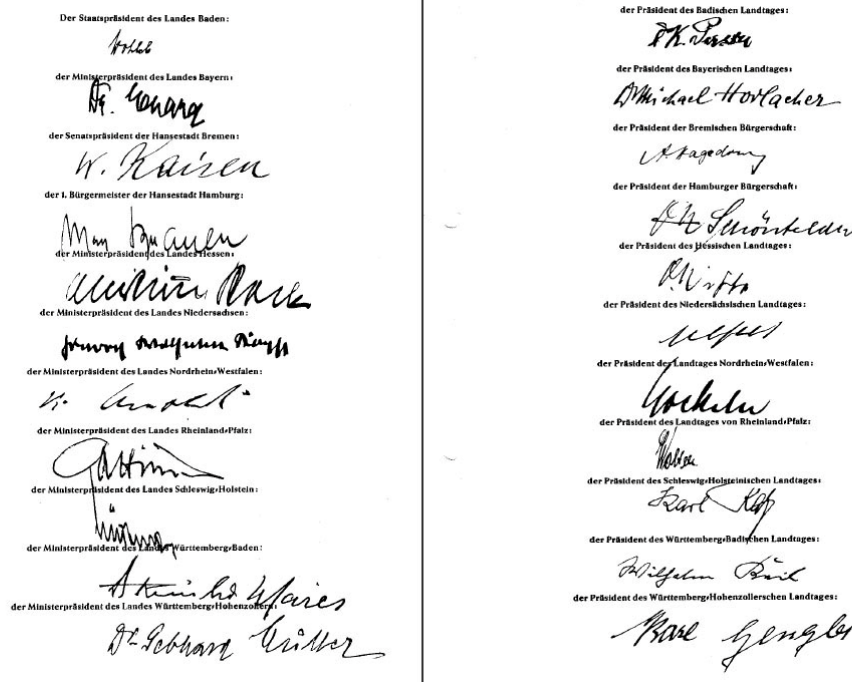 Der Staatspräsident des Landes Baden:
Wohleb
der Ministerpräsident des Landes Bayern:
Dr. Ehard
der Senatspräsident der Hansestadt Bremen:
W. Kaisen
der 1. Bürgermeister der Hansestadt Hamburg:
Max Brauer
der Ministerpräsident des Landes Hessen:
Christian Stock
der Ministerpräsident des Landes Niedersachsen:
Hinrich Wilhelm Kopf
der Ministerpräsident des Landes Nordrhein-Westfalen:
K. Arnold
der Ministerpräsident des Landes Rheinland-Pfalz:
Altmeier
der Ministerpräsident des Landes Schleswig-Holstein:
Lüdemann
der Ministerpräsident des Landes Württemberg-Baden:
Reinhold Maier
der Ministerpräsident des Landes Württemberg-Hohenzollern:
Dr. Gebhard Müller
der Präsident des Badischen Landtages:
Dr K. Person
der Präsident des Bayerischen Landtages:
Dr Michael Horlacher
der Präsident der Bremischen Bürgerschaft:
A. Hagedorn
der Präsident der Hamburger Bürgerschaft:
Schönfelder
der Präsident des Hessischen Landtages:
O. Witte
der Präsident des Niedersächsischen Landtages:
der Präsident des Landtages Nordrhein-Westfalen:
Gockeln
der Präsident des Landtages von Rheinland-Pfalz:
der Präsident des Schleswig-Holsteinischen Landtages:
Karl
der Präsident des Württemberg-Badischen Landtages:
Wilhelm Keil
der Präsident des Württemberg-Hohenzollerschen Landtages:
Karl Gengler